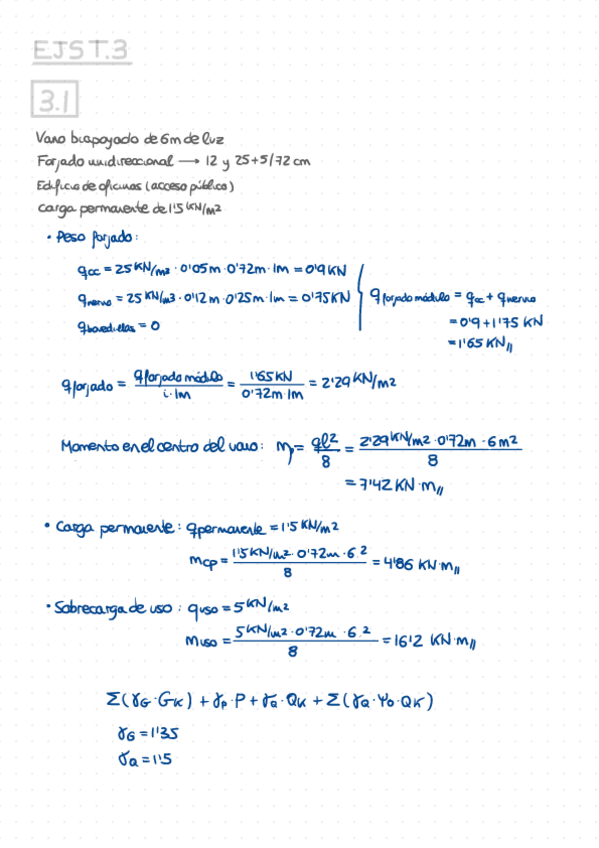 EJS T.3
3.1
Vano biapoyado de 6m de luz
Forjado unidireccional → 12 y 25+5/72 cm
Edificio de oficinas (acceso público)
Carga permanente de 1'5 KN/m²
• Peso forjado:
qcc = 25 KN/m³ · 0'05m · 0'72m · 1m = 0'9 KN
qnervio = 25 KN/m3 · 0'12m · 0'25m · 1m = 0'75KN
qbovedillas = 0
qforjado módulo = qcc + qnervio
= 0'9 + 1'75 KN
= 1'65 KN//
qforjado = qforjado módulo / i·1m = 1'65 KN / 0'72m·1m = 2'29 KN/m²
Momento en el centro del vano: Mp = ql² / 8 = 2'29 KN/m² · 0'72m · 6m² / 8
= 7'42 KN·m//
• Carga permanente: qpermanente = 1'5 KN/m²
Mcp = 1'5 KN/m² · 0'72m · 6² / 8 = 4'86 KN·m//
• Sobrecarga de uso: quso = 5 KN/m²
Muso = 5 KN/m² · 0'72m · 6² / 8 = 16'2 KN·m//
Σ(γG · GK) + γp · P + γQ · QK + Σ(γQ · Ψ0 · QK)
γG = 1'35
γQ = 1'5